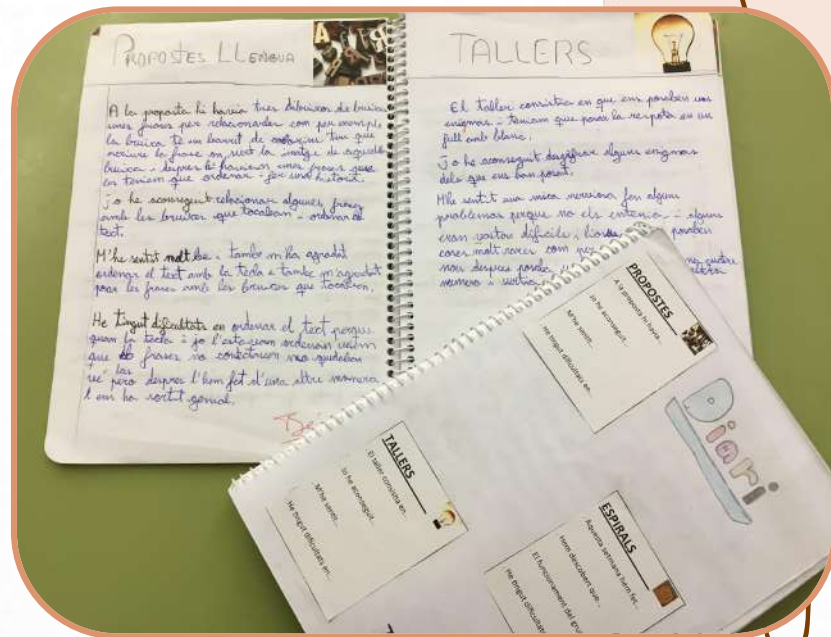 PROPOSTES LLENGUA
A la proposta hi havia tres dibuixos de bruixes
unes frases per relacionarles com per exemple
la bruixa te un barret de
la frase on surt la imatge de aquella
bruixa i despres hi havien unes frases que
les teniem que ordenar i fer una historia.
Jo he aconseguit relacionar algunes frases
amb les bruixes que tocaban i ordenar el
text.
M'he sentit molt be i tambe m'ha agradat
ordenar el text amb la Tecla e tambe m'agradat
posar les frases amb les bruixes que tocaban.
He Tingut dificultats en ordenar el text perque
quan la Tecla i jo l'estavem ordenan veiem
que les frases no conectaven no quedaban
be pero despres l'hem fet d'una altre manera
i ens ha sortit genial.
TALLERS
El taller consistia en que ens posaben uns
enigmas i teniem que posar la resposta en un
full amb blanc.
Jo he aconseguit desxifrar alguns enigmas
dels que ens han posat.
M'he sentit una mica nerviosa fen alguns
problemas perque no els entenia i alguns
eran bastan dificils i posaben
coses molt rares com per
nou despres posaba
numero i sortia
PROPOSTES
A la proposta hi havia...
Jo he aconseguit...
M'he sentit...
He tingut dificultats en...
Diari
TALLERS
El taller consistia en...
Jo he aconseguit...
M'he sentit...
He tingut dificultats en...
ESPIRALS
Aquesta setmana hem fet...
Hem descobert que...
El funcionament del
He tingut